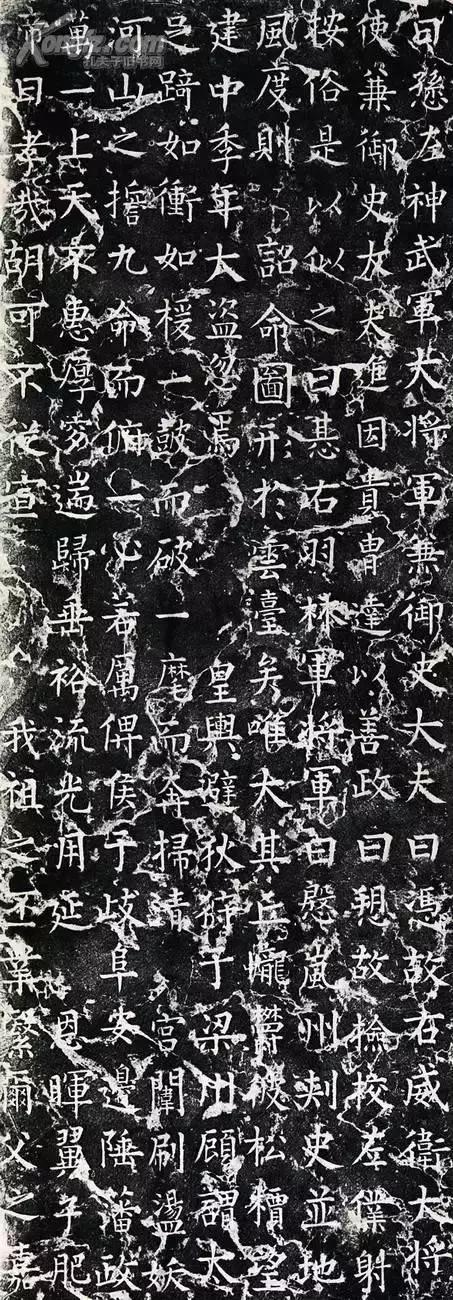 曰愻左神武軍大将軍兼御史大夫曰憑故右威衛大将
使兼御史大夫進因貴曹達以善政曰憩故撿挍左僕射
按俗是以似之曰惎右羽林軍将軍曰慇嵐州刾史並地
風度則 詔命圖形於雲臺矣唯大其丘壠欝彼松檟望
建中季年大盜忽焉 皇輿避狄狩于梁州顧謂太
足踦如衝如 一鼓而破一麾而奔掃清 宮闈刷盪妖
河山之 九命而俯一心若厲俾侯于歧阜安邊陲蕃政
萬一上天不惠厚穸遄歸垂裕流光用延 恩暉翼子肥
市曰孝哉胡可不從宣 我祖之丕業繄爾父之嘉
Kongfz.com
孔夫子旧书网